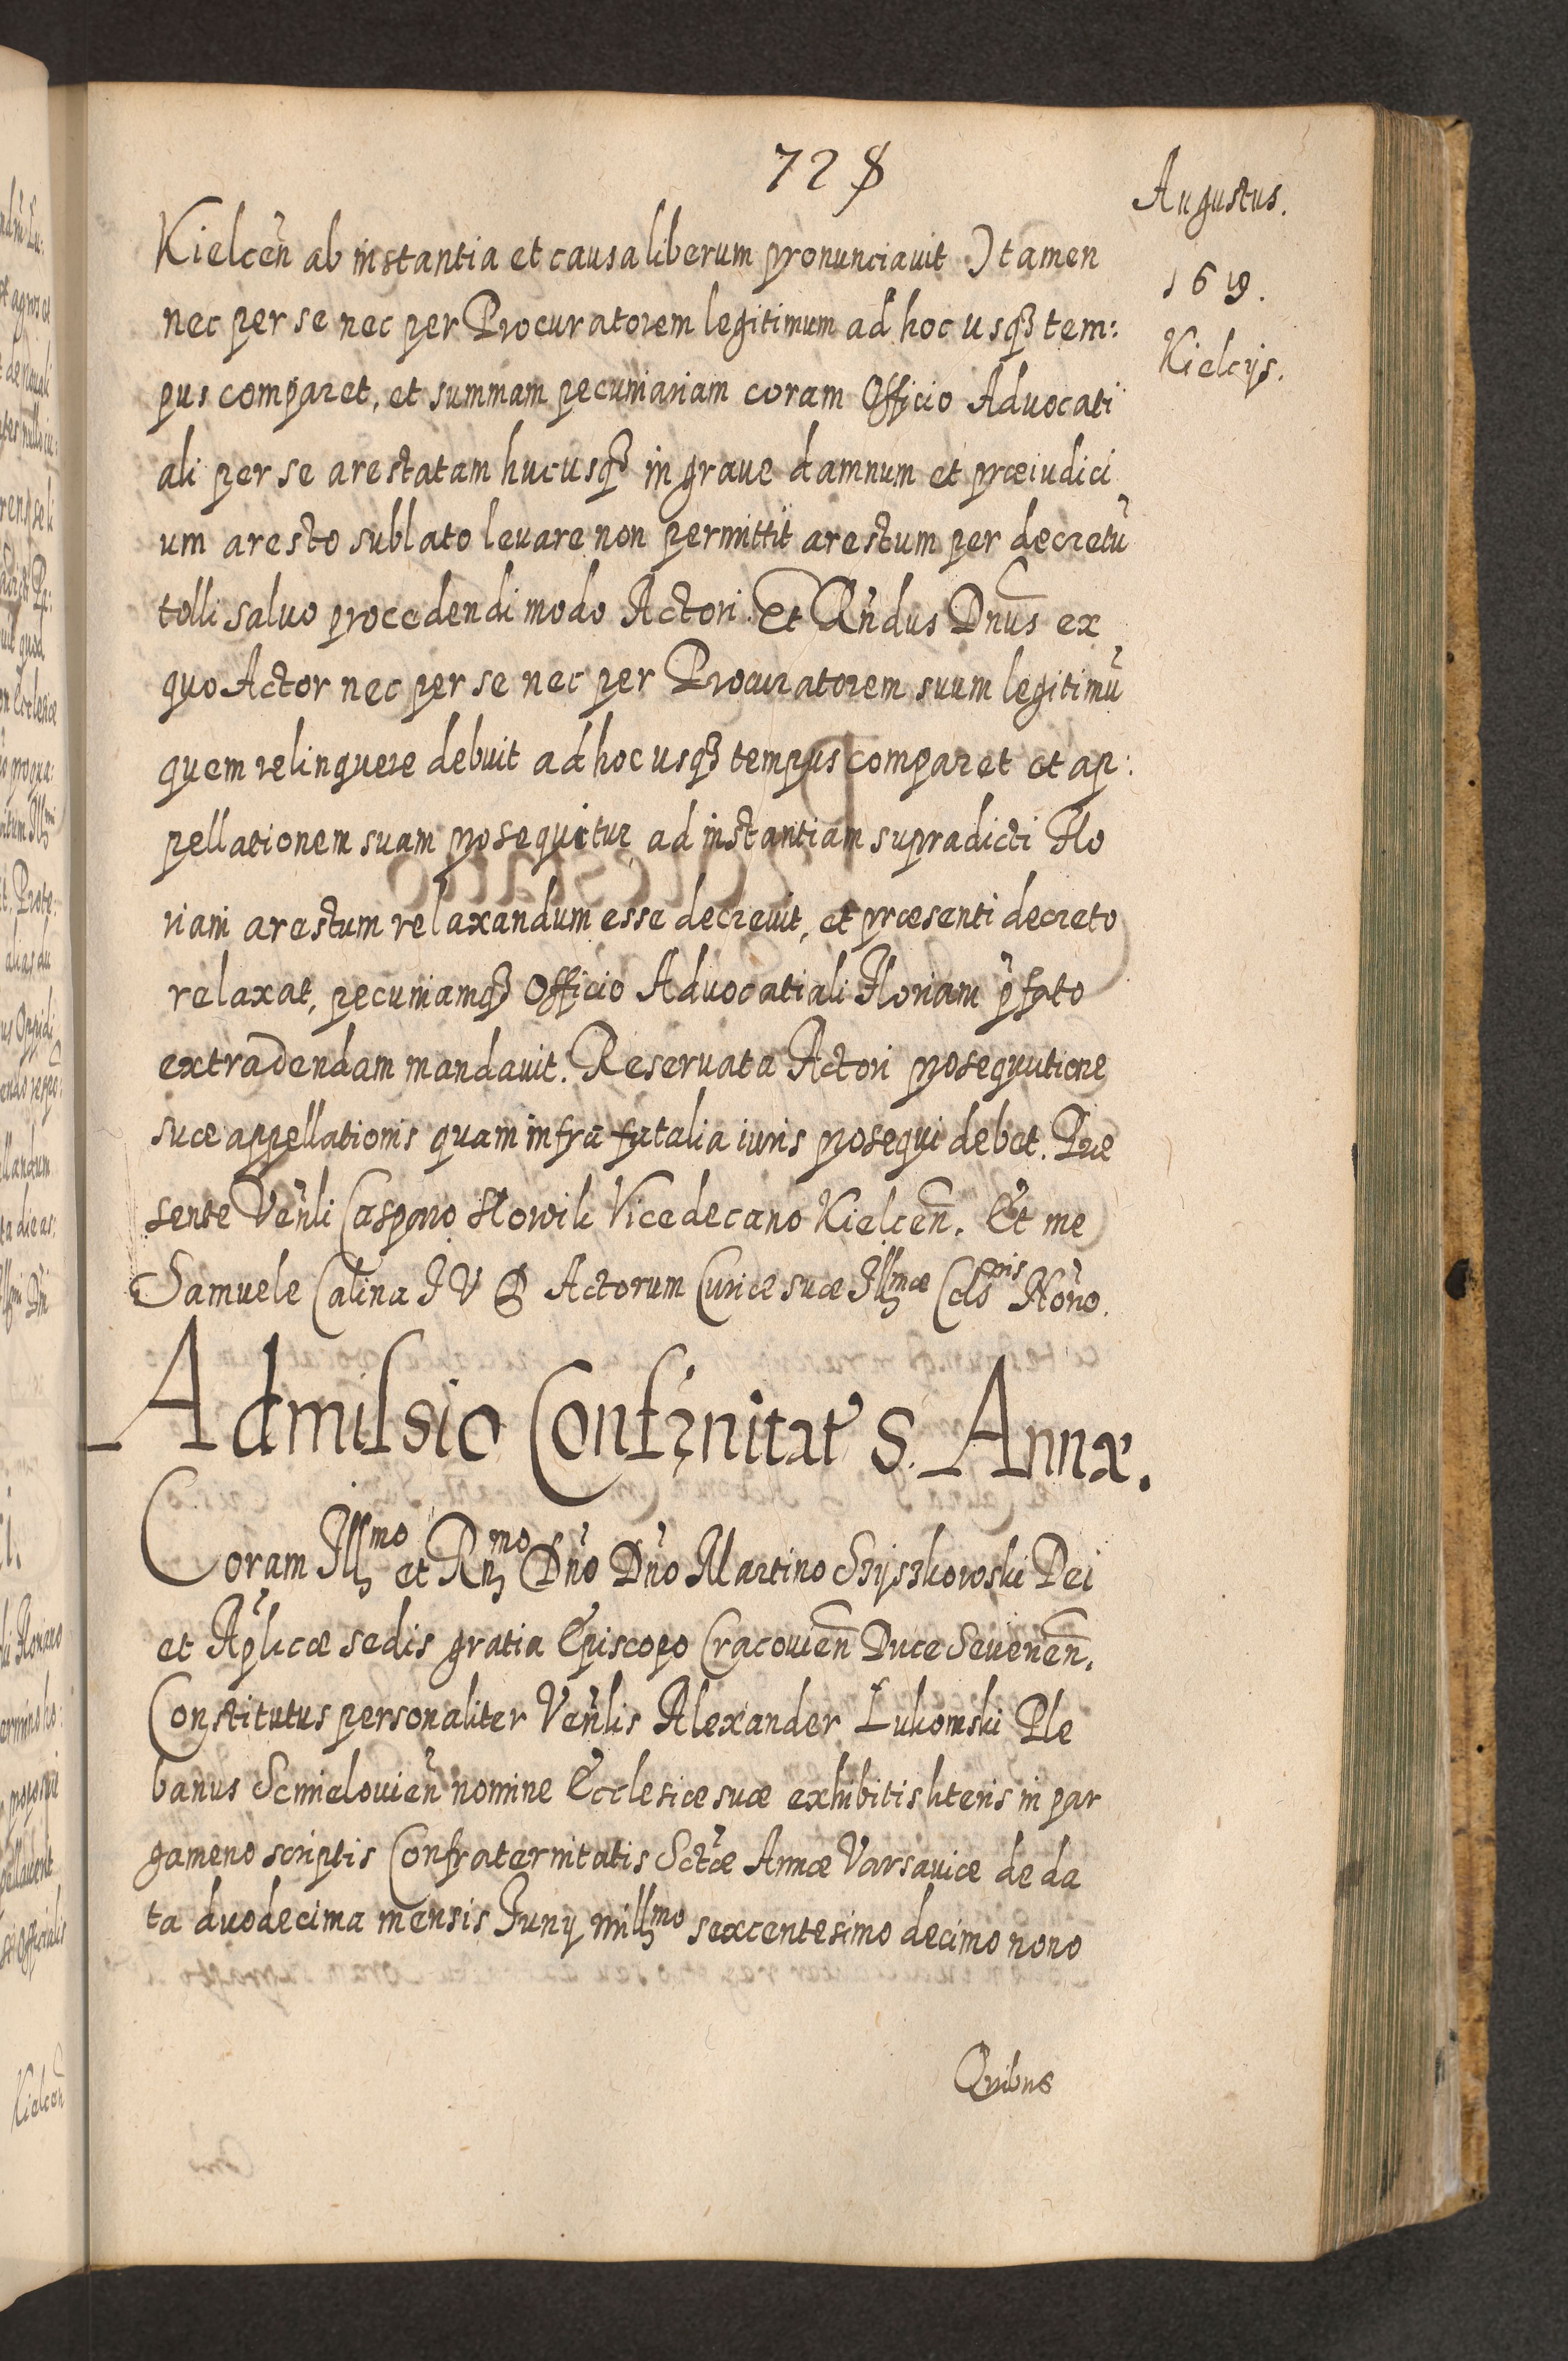 728
Augustus.
1619.
Kielcijs.
Kielceñ ab instantia et causa liberum pronunciavit ) tamen
nec per se nec per Procuratorem legitimum ad hoc usqꝫ tem:
pus comparet, et summam pecuniariam coram Officio Advocati
ali per se arestatam hucusqꝫ in grave damnum et præiudici
um aresto sublato levare non permittit arestum per decretũ
tolli salvo procedendi modo Actori. Et Rñdus Dñus ex
quo Actor nec per se nec per Procuratorem suum legitimũ
quem relinquere debuit ad hoc usqꝫ tempus comparet et ap:
pellationem suam prosequitur ad instantiam supradicti Flo
riani arestum relaxandum esse decrevit, et præsenti decreto
relaxat, pecuniamqꝫ Officio Advocatiali Floriani p̃fato
extradendam mandavit. Reservata Actori prosequutione
suæ appellationis quam infra fatalia iuris prosequi debet. Præ
sente Veñli Casparo Vicedecano Kielceñ. Et me
Samuele Calina J V D Actorum Curiæ suæ Illmæ Cels Noño.
Admissio Confrnitat S. Annæ.
Coram Illmo et Rnmo Dño Dño Martino Szyszkowski Dei
et Aplicæ sedis gratia Episcopo Cracovieñ Duce Seveneñ.
Constitutus personaliter Veñlis Alexander Łukomski Ple
banus Scmielovieñ nomine Ecclesiæ suæ exhibitis literis in par
gameno scriptis Confraternitatis Sctæ Annæ Varsaviæ de da
ta duodecima mensis Junij millmo sexcentesimo decimo nono
Quibus